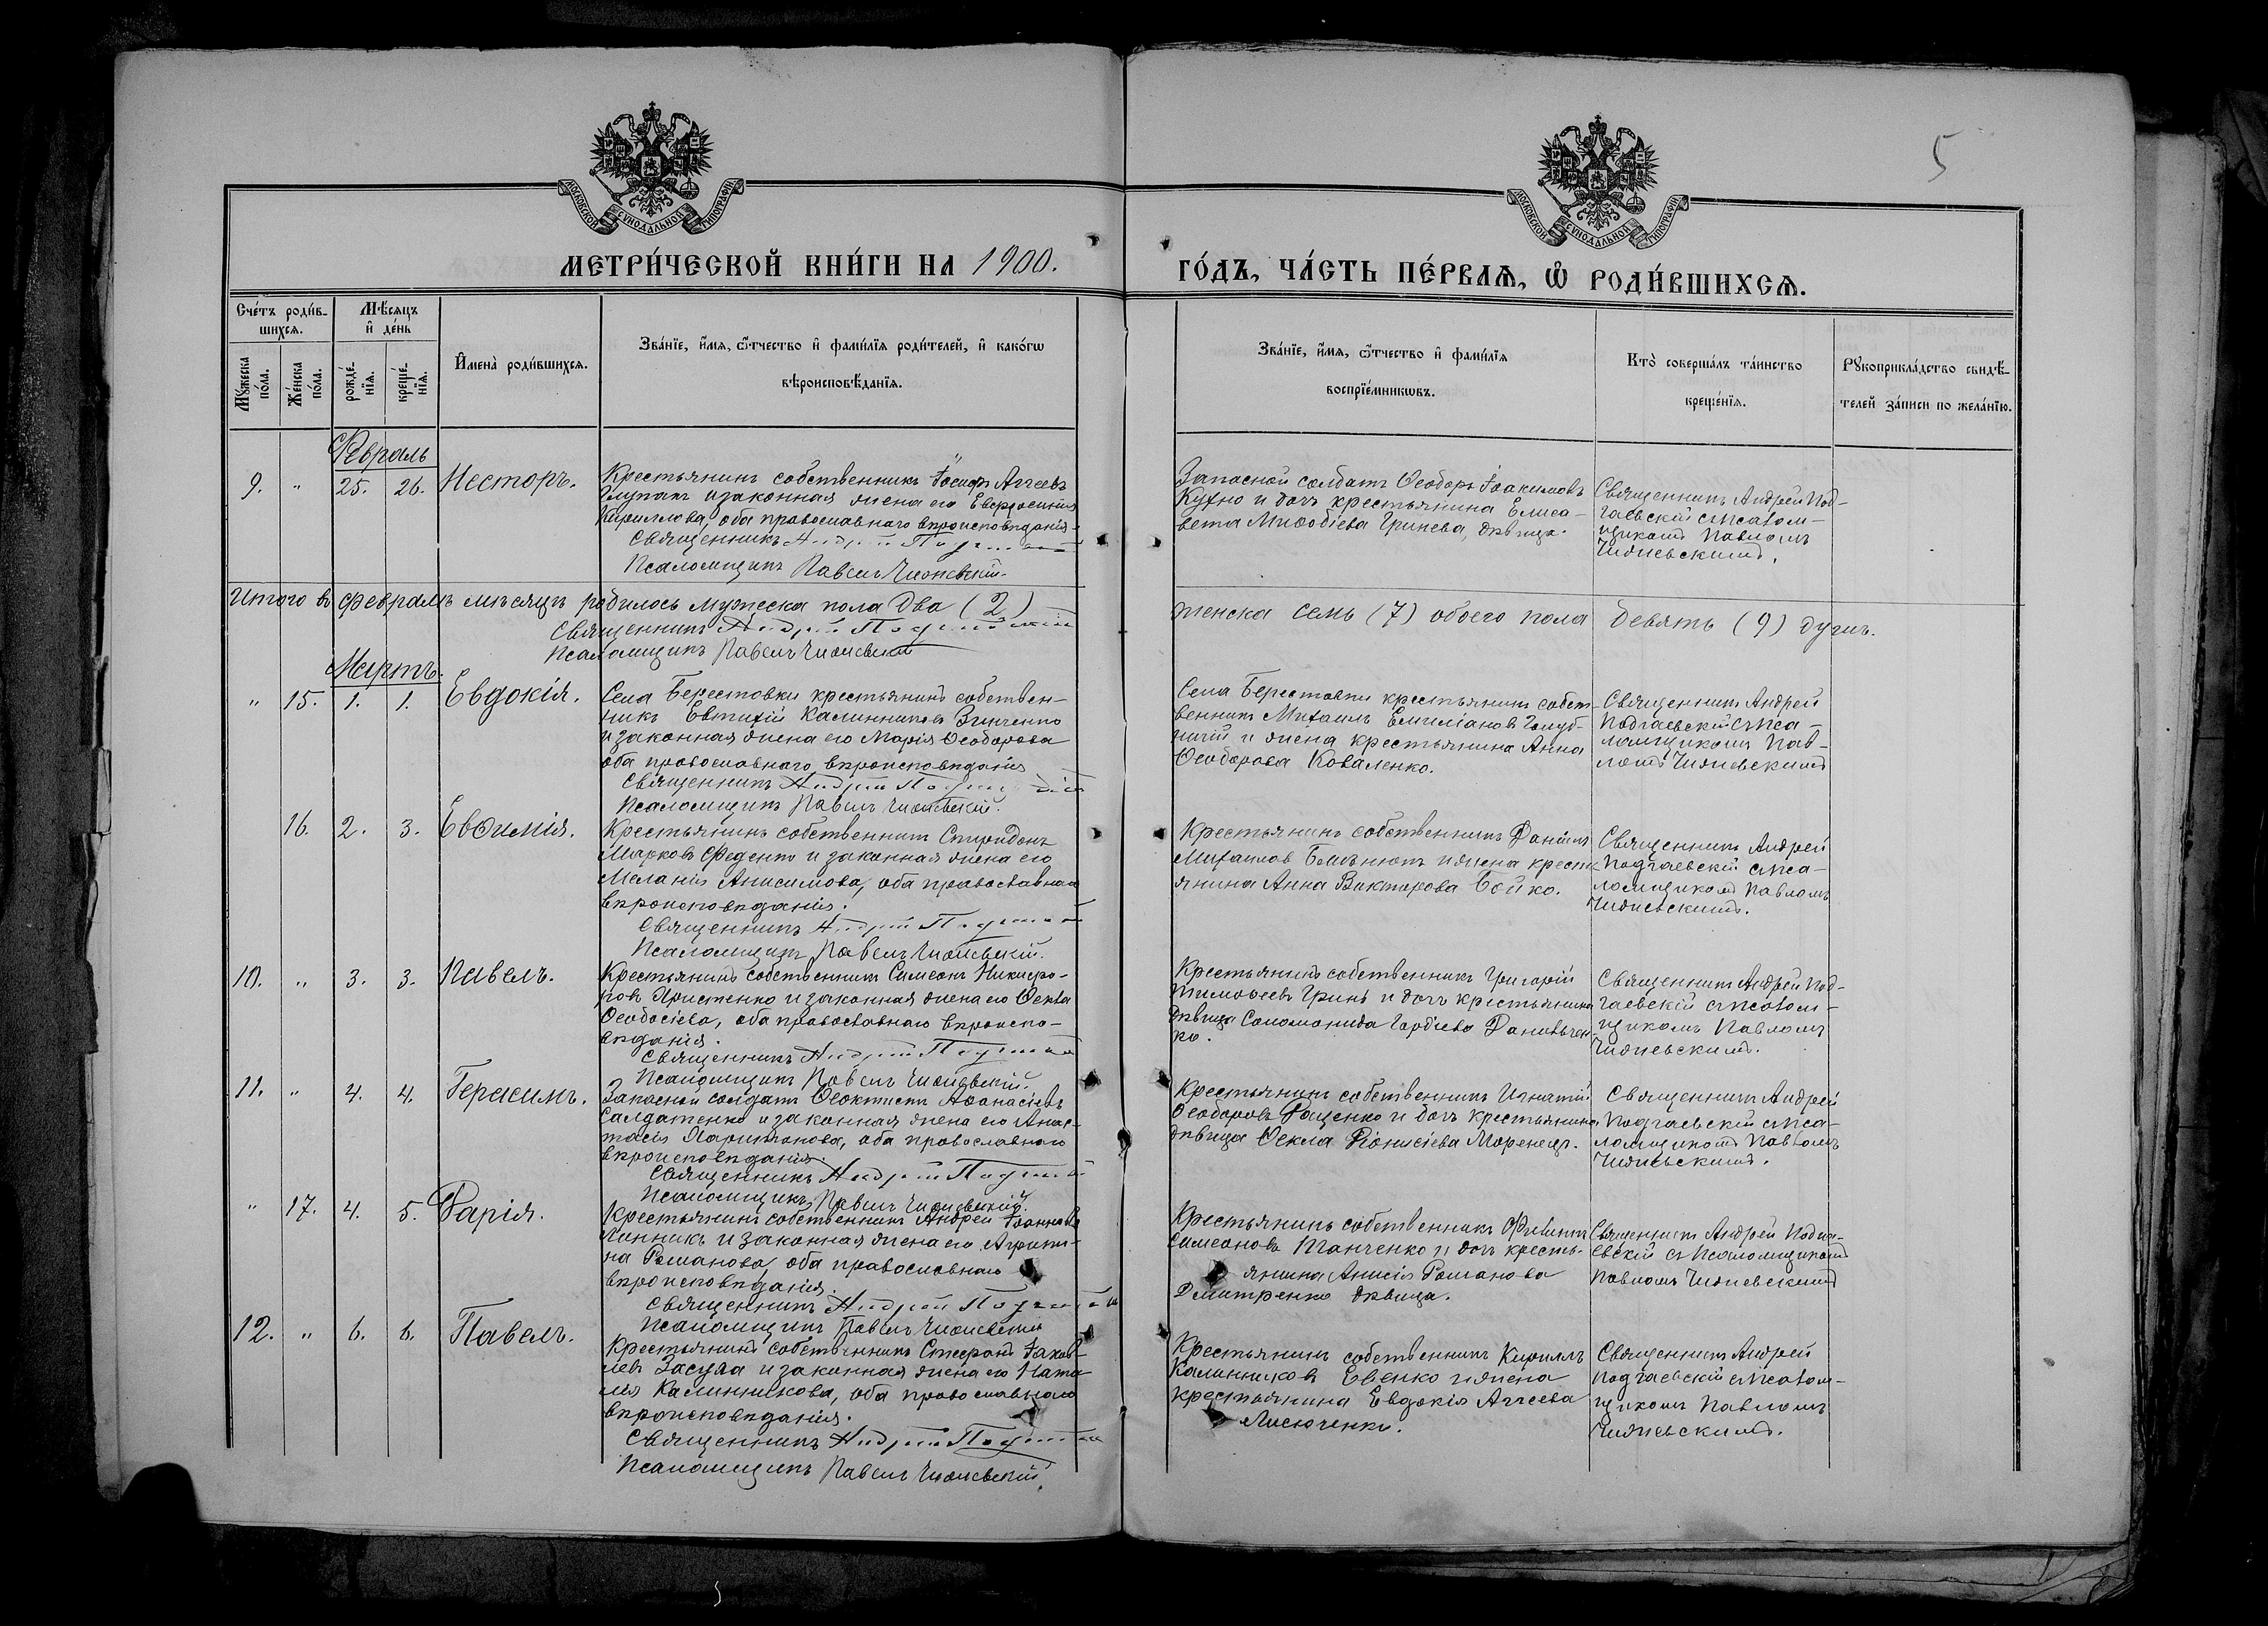 5
МОСКОВСКОЙ СѴНОДАЛЬНОЙ ТИПОГРАФІИ
МОСКОВСКОЙ СѴНОДАЛЬНОЙ ТИПОГРАФІИ
МЕТРИ́ЧЕСКОЙ КНИ́ГИ НА 1900.
ГО́ДЪ, ЧА́СТЬ ПЕ́РВАѦ, Ѡ҆ РОДИ́ВШИХСѦ.
Сче́тъ роди́в-
шихсѧ.
Мꙋ́жеска по́ла.
Же́нска по́ла.
Мѣ́сѧцъ
и҆ де́нь
рожде́-
нїѧ.
креще́-
нїѧ.
И҆мена̀ роди́вшихсѧ.
Зва́нїе, и҆́мѧ, ѻ҆́тчество и҆ фами́лїѧ роди́телей, и҆ како́гѡ
вѣроисповѣ́данїѧ.
Зва́нїе, и҆́мѧ, ѻ҆́тчество и҆ фами́лїѧ
воспрїе́мникѡвъ.
Кто̀ соверша́лъ та́инство
креще́нїѧ.
Рꙋкоприкла́дство свидѣ́-
телей за́писи по жела́нїю.
Февраль
9. " 25. 26. Несторъ.
Крестьянинъ собственникъ Іосифъ Аггеевъ
и законная жена его Евфросинія
Кириллова, оба православнаго вѣроисповѣданія.
Священникъ Андрей
Псаломщикъ Павелъ Чижевскій.
Запасной солдатъ Ѳеодоръ Іоакимовъ
Кухно и дочь крестьянина Елиса-
вета Меѳодіева Гринева, дѣвица.
Священникъ Андрей Под-
гаевскій съ псалом-
щикомъ Павломъ
Чижевскимъ.
Итого въ февралѣ мѣсяцѣ родилось мужеска пола два (2)
женска семь (7) обоего пола девять (9) душъ.
Священникъ Андрей
Псаломщикъ Павелъ Чижевскій
Мартъ.
" 15. 1. 1. Евдокія.
Села Берестовки крестьянинъ собствен-
никъ Евтихій Каллиниковъ Зинченко
и законная жена его Марія Ѳеодорова
оба православнаго вѣроисповѣданія
Священникъ Андрей
Псаломщикъ Павелъ Чижевскій.
Села Берестовки крестьянинъ собст-
венникъ Михаилъ Емиліановъ
и жена крестьянина Анна
Ѳеодорова Коваленко.
Священникъ Андрей
Подгаевскій съ пса-
ломщикомъ Пав-
ломъ Чижевскимъ
16. 2. 3. Евѳимія.
Крестьянинъ собственникъ Спиридонъ
Марковъ Феденко и законная жена его
Меланія Анисимова, оба православнаго
вѣроисповѣданія.
Священникъ Андрей
Псаломщикъ Павелъ Чижевскій.
Крестьянинъ собственникъ Даніилъ
Михаиловъ и жена кресть-
янина Анна Викторова Бойко.
Священникъ Андрей
Подгаевскій съ пса-
ломщикомъ Павломъ
Чижевскимъ.
10. " 3. 3. Павелъ.
Крестьянинъ собственникъ Симеонъ Никифо-
ровъ Христенко и законная жена его Ѳекла
Ѳеодосіева, оба православнаго вѣроиспо-
вѣданія.
Священникъ Андрей
Псаломщикъ Павелъ Чижевскій.
Крестьянинъ собственникъ Григорій
Тимоѳеевъ Гринь и дочь крестьянина
дѣвица Соломонида Гордіева Данильчен-
ко.
Священникъ Андрей Под-
гаевскій съ псалом-
щикомъ Павломъ
Чижевскимъ.
11. " 4. 4. Герасимъ.
Запасной солдатъ Ѳеоктистъ Аѳанасіевъ
Салдатенко и законная жена его Анас-
тасія Харитонова, оба православнаго
вѣроисповѣданія.
Священникъ Андрей
Псаломщикъ Павелъ Чижевскій.
Крестьянинъ собственникъ Игнатій
Ѳеодоровъ и дочь крестьянина
дѣвица Ѳекла Діонисіева Моренецъ.
Священникъ Андрей
Подгаевскій съ пса-
ломщикомъ Павломъ
Чижевскимъ.
" 17. 4. 5. Дарія.
Крестьянинъ собственникъ Андрей Іоанновъ
Линникъ и законная жена его Агрипи-
на Романова, оба православнаго
вѣроисповѣданія.
Священникъ Андрей
Псаломщикъ Павелъ Чижевскій
Крестьянинъ собственникъ
Симеоновъ Танченко и дочь кресть-
янина Анисія Романова
Дмитренко дѣвица.
Священникъ Андрей Подга-
евскій съ Псаломщикомъ
Павломъ Чижевскимъ
12. " 6. 6. Павелъ.
Крестьянинъ собственникъ Стефанъ Іаков-
левъ Засуха и законная жена его Ната-
лія Каллиникова, оба православнаго
вѣроисповѣданія.
Священникъ Андрей
Псаломщикъ Павелъ Чижевскій
Крестьянинъ собственникъ Кириллъ
Каллиниковъ Евенко и жена
крестьянина Евдокія Аггеева
Лисюченко.
Священникъ Андрей
Подгаевскій съ псалом-
щикомъ Павломъ
Чижевскимъ.